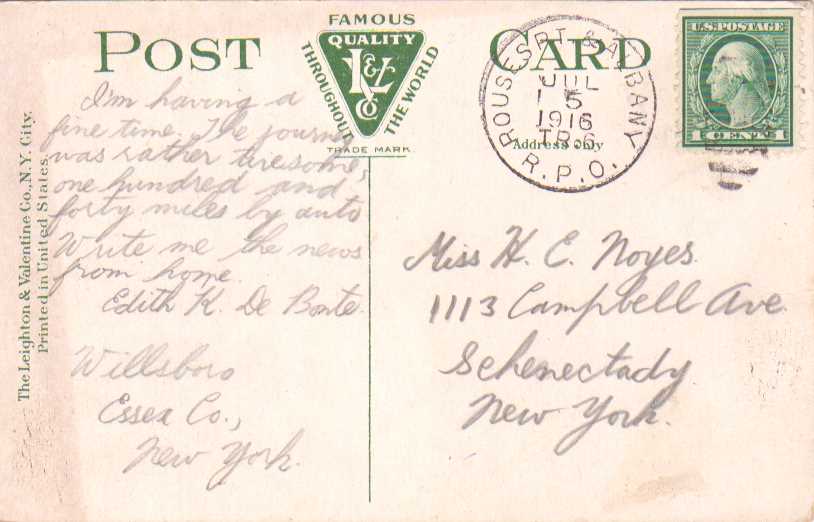 POST CARD
FAMOUS
QUALITY
L&V
Co
THROUGHOUT THE WORLD
TRADE MARK
Address only
ROUSES PT. & ALBANY
JUL
5
1916
TR 6
R.P.O.
U.S. POSTAGE
1 CENT 1
The Leighton & Valentine Co., N.Y. City.
Printed in United States.
I'm having a
fine time. The journey
was rather tiresome,
one hundred and
forty miles by auto
Write me the news
from home.
Edith K. De Bonte.
Willsboro
Essex Co.,
New York.
Miss H. E. Noyes.
1113 Campbell Ave.
Schenectady
New York.